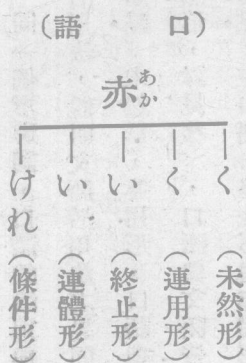 (口語)
赤
あか
く(未然形)
く(連用形)
い(終止形)
い(連體形)
けれ(條件形)